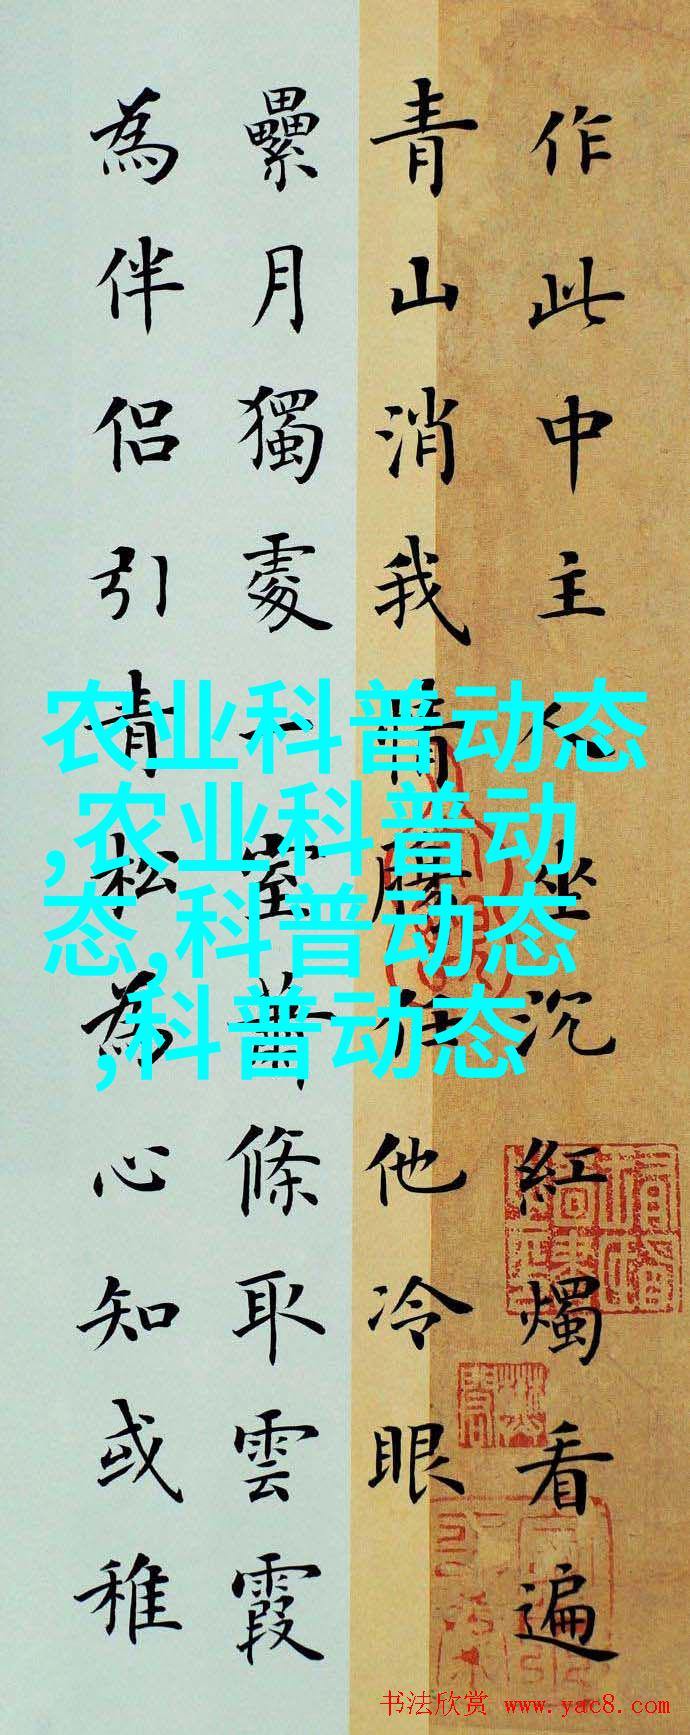 作此中主人坐沉紅燭看遍
青山消我情腸任他冷眼
纍月獨處一室蕭條取雲霞
為伴侶引青松為心知或稚
农业科普动态
,农业科普动
态,科普动态
,科普动态
书法欣赏 www.yac8.com